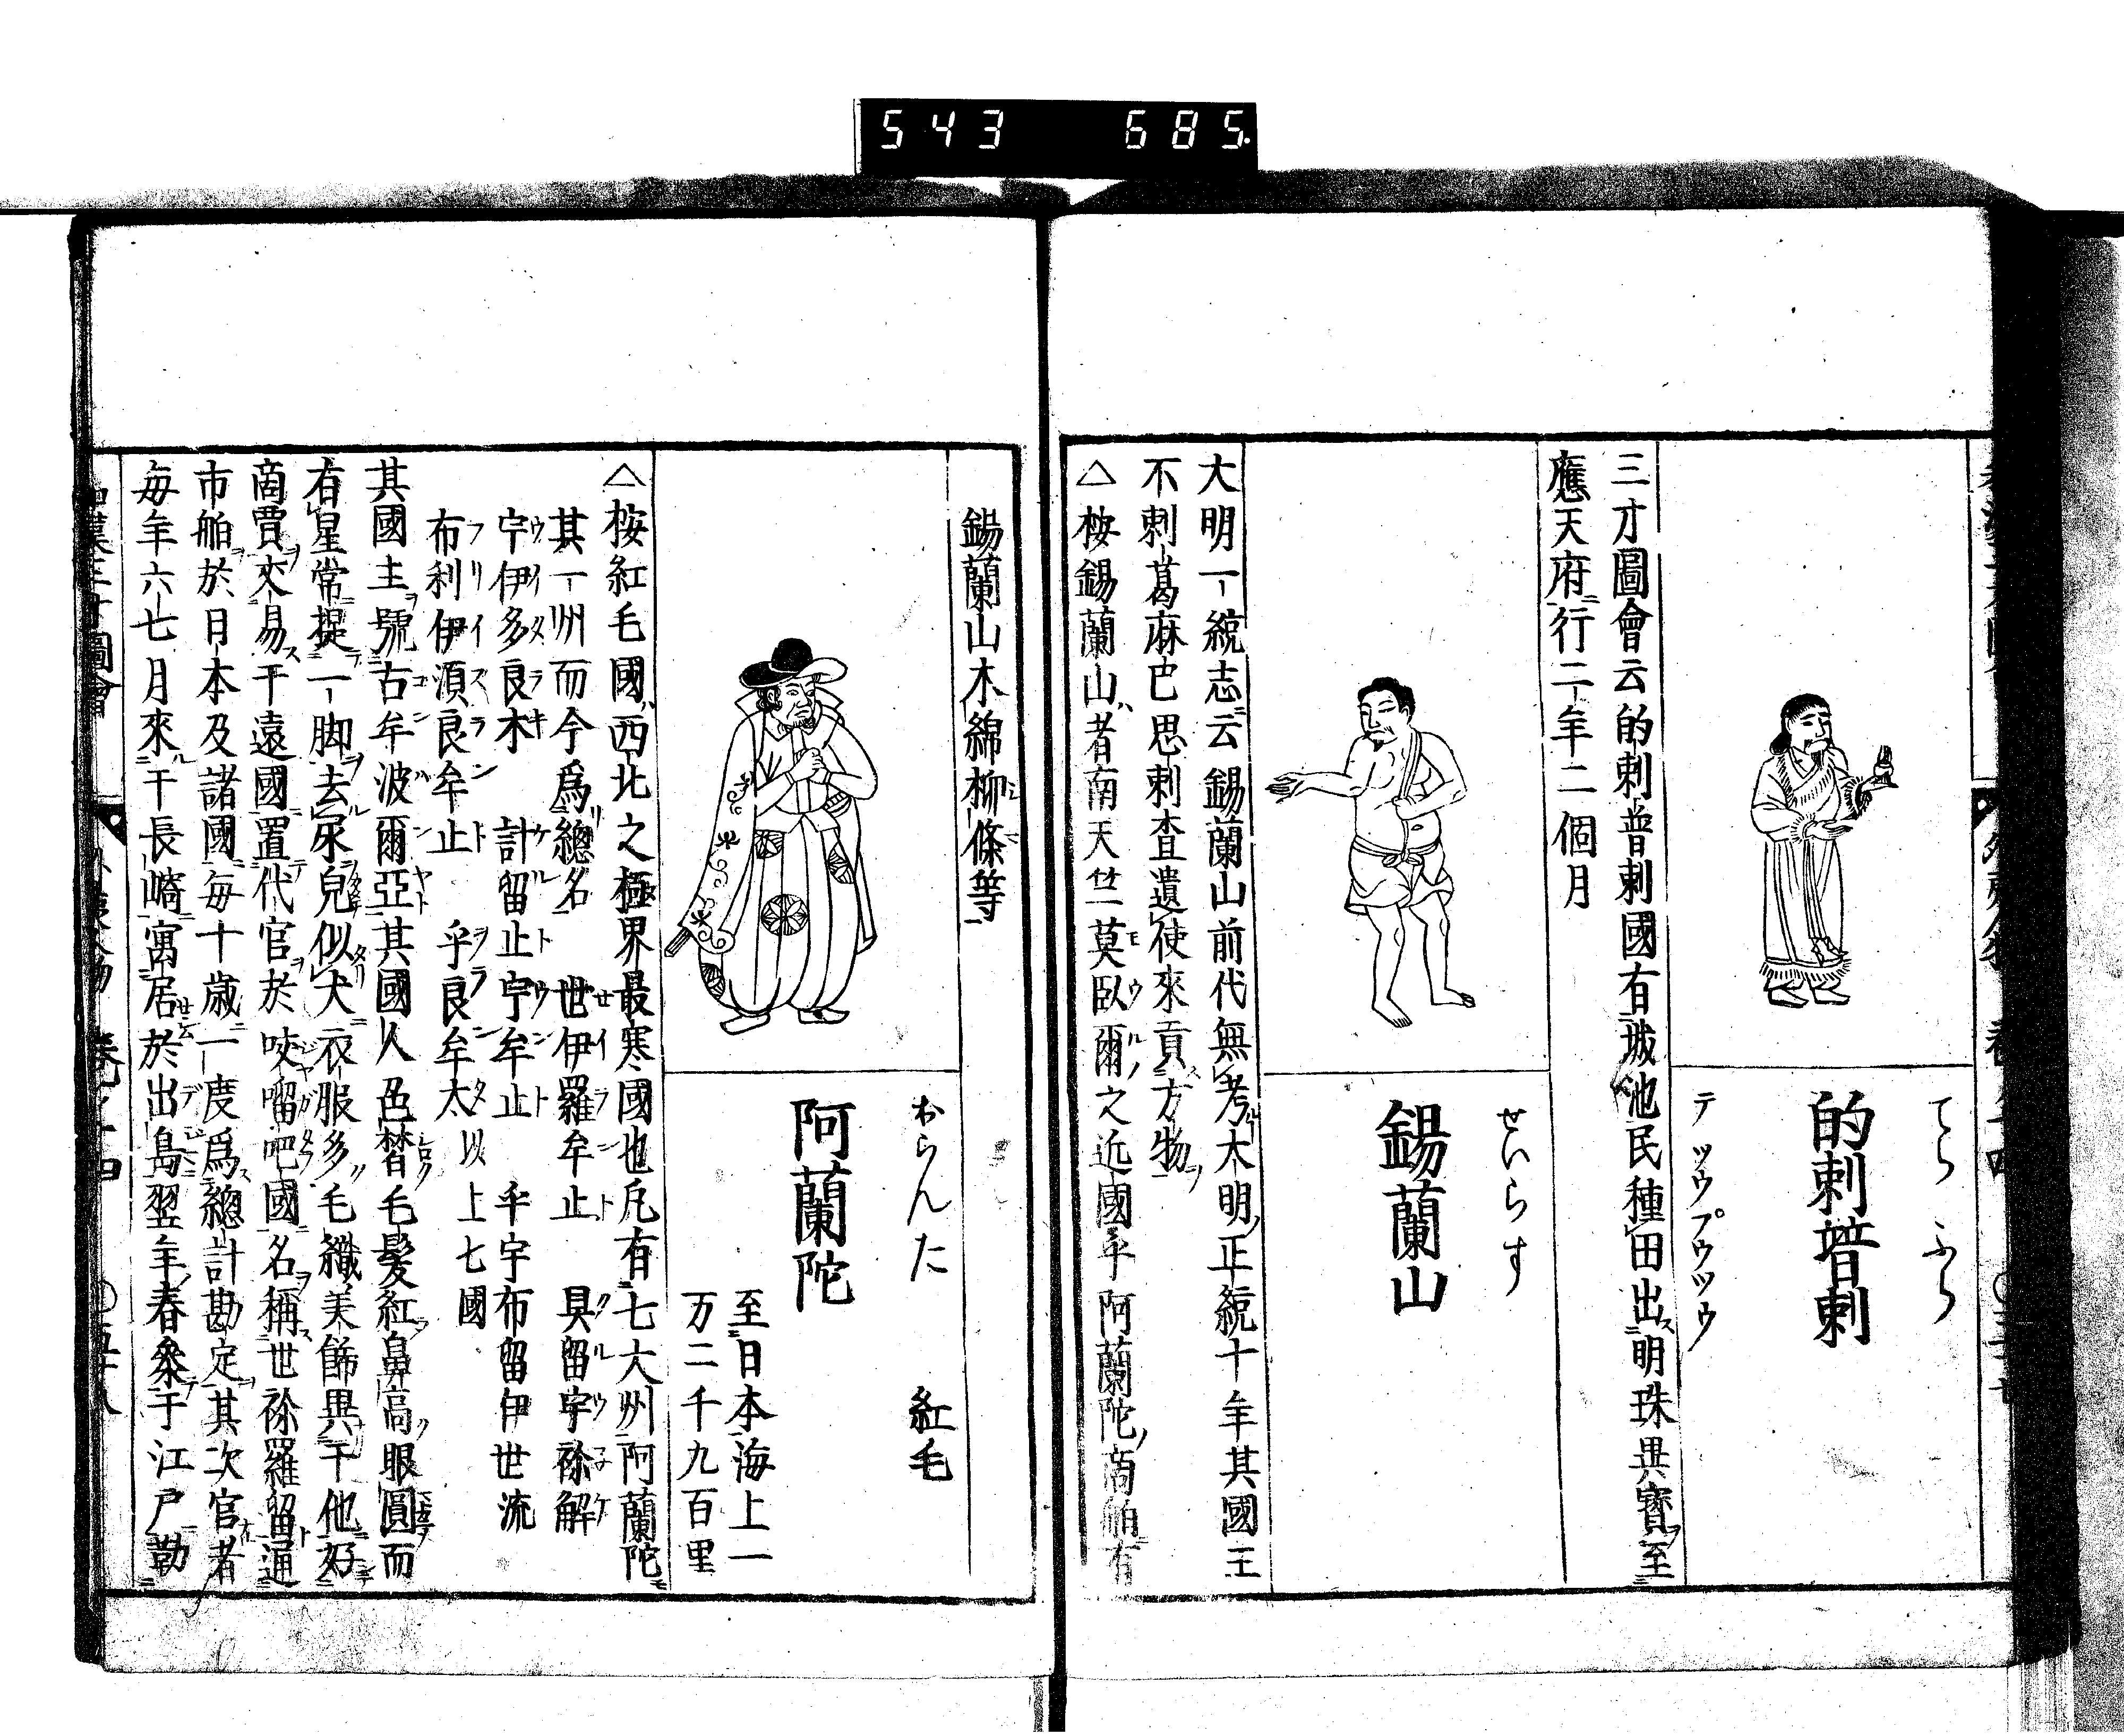 543 685
てら ふら
的剌普剌
テツウプウツウ
三才圖會云的剌普剌國有城池民種田出明珠異寳至
應天府行二年二個月
せいらす
錫蘭山
大明一統志云錫蘭山前代無考大明正統十年其國王
不剌葛麻巴思剌査遣使來貢方物
△按錫蘭山者南天竺莫臥爾之近國乎阿蘭陀商舶有
錫蘭山木綿柳條等
おらんた 紅毛
阿蘭陀
至日本海上一
万二千九百里
△按紅毛國西北之極界最寒國也凡有七大州阿蘭陀
其一州而今爲總名 世伊羅牟止 具留宇祢解
宇伊多良木 計留止宇牟止 乎宇布留伊世流
布利伊須良牟止 乎良牟太 以上七國
其國主號古牟波爾亞其國人色皙毛髮紅鼻高眼圓而
有星常提一脚去尿皃似犬衣服多毛織美餝異于他好
商賈交易于遠國置代官於咬𠺕吧國名稱世祢羅留通
市舶於日本及諸國毎十歳一度爲總計勘定其次官者
毎年六七月來于長崎寓居於出島翌年春參于江戸勒
和漢三才圖會